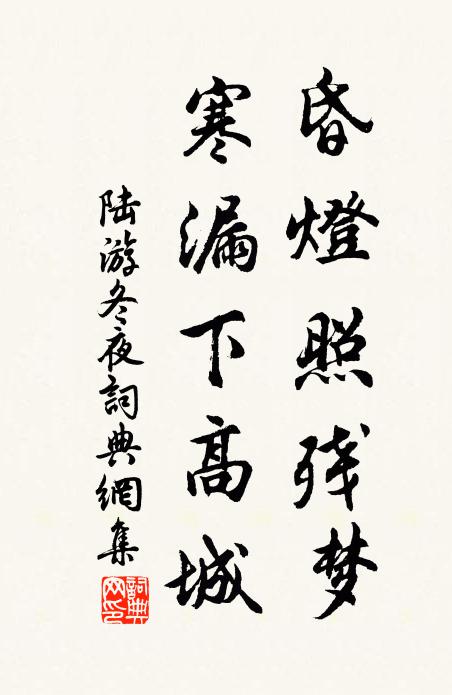 昏燈照残梦
寒漏下高城
陆游冬夜詞典網集
詞典网印